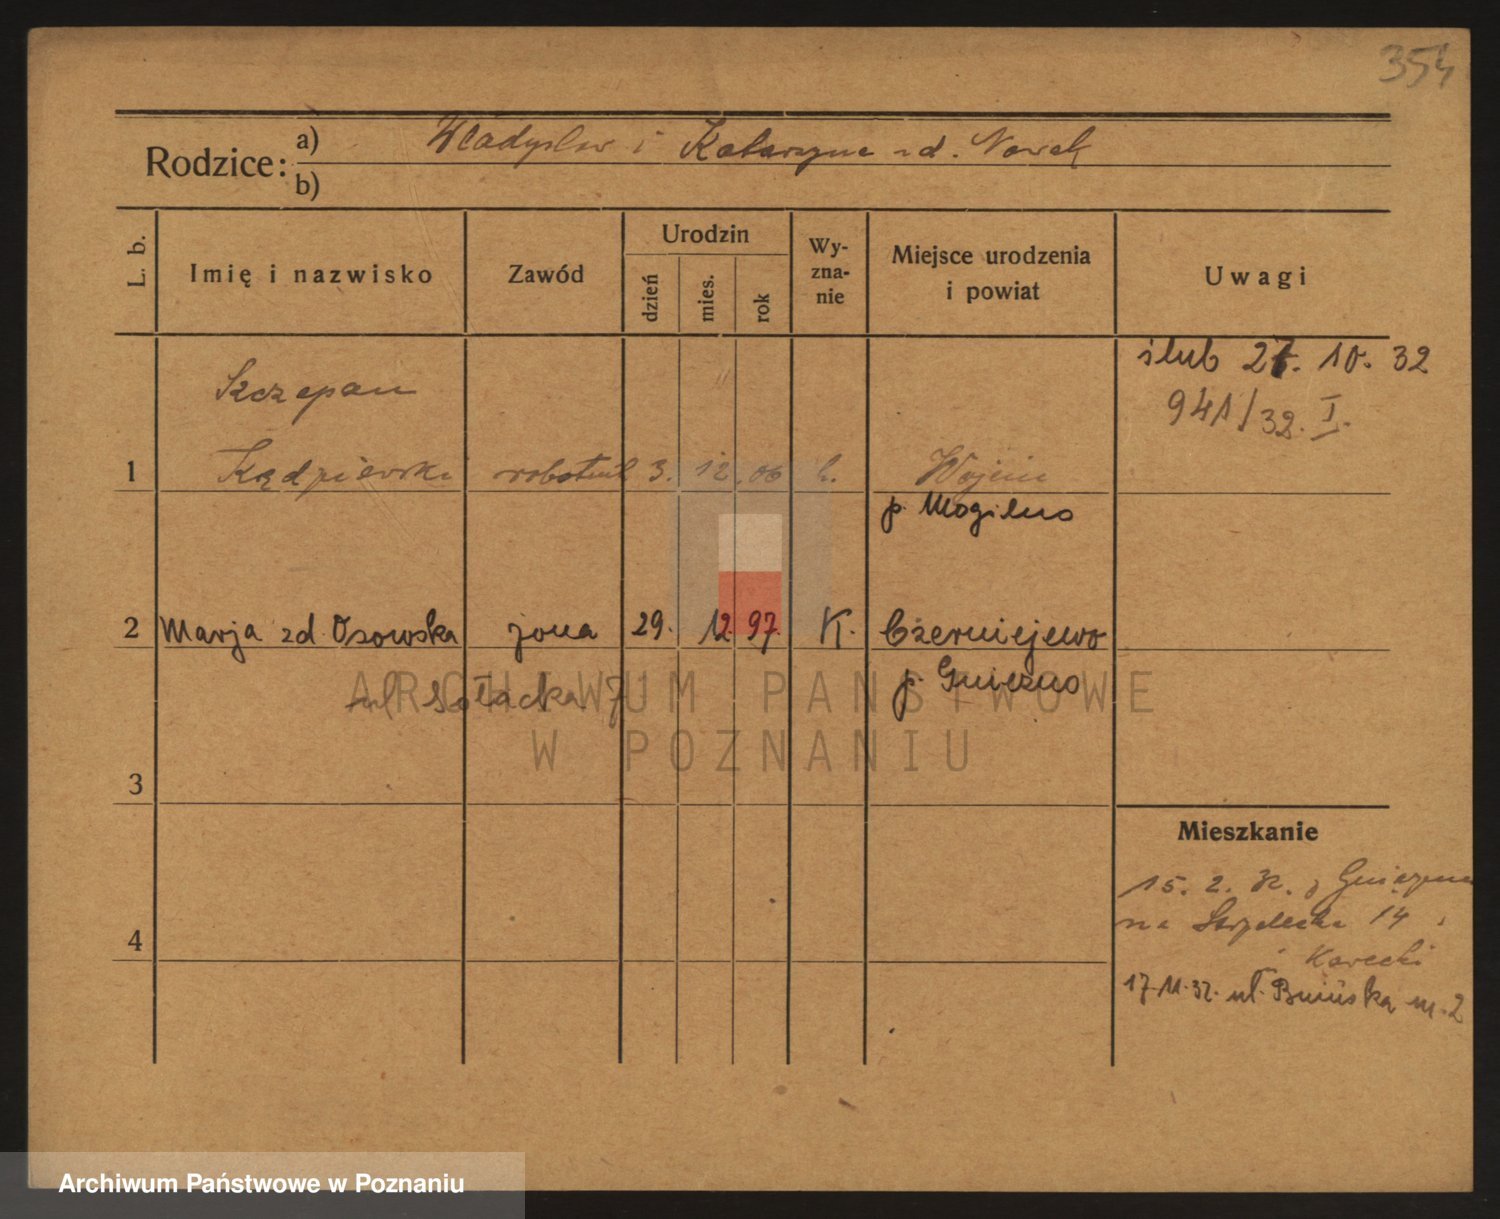 354
Rodzice:
a) Władysław i Katarzyna zd. Nowak
b)
L. b.
Imię i nazwisko
Zawód
Urodzin
dzień
mies.
rok
Wy-
zna-
nie
Miejsce urodzenia
i powiat
Uwagi
ślub 27. 10. 32
941/32. I.
Szczepan
1 Kędzierski robotnik 3. 12. 06 k. Wójcin
p. Mogilno
2 Marja zd. Osowska żona 29. 12. 97. K. Czerniejewo
p. Gniezno
ul Sołacka 7
ARCHIWUM PAŃSTWOWE
W POZNANIU
3
Mieszkanie
15. 2. 32. z Gniezna
na 14
4
Karecki
17.11.32. ul. Bnińska m. 2
Archiwum Państwowe w Poznaniu